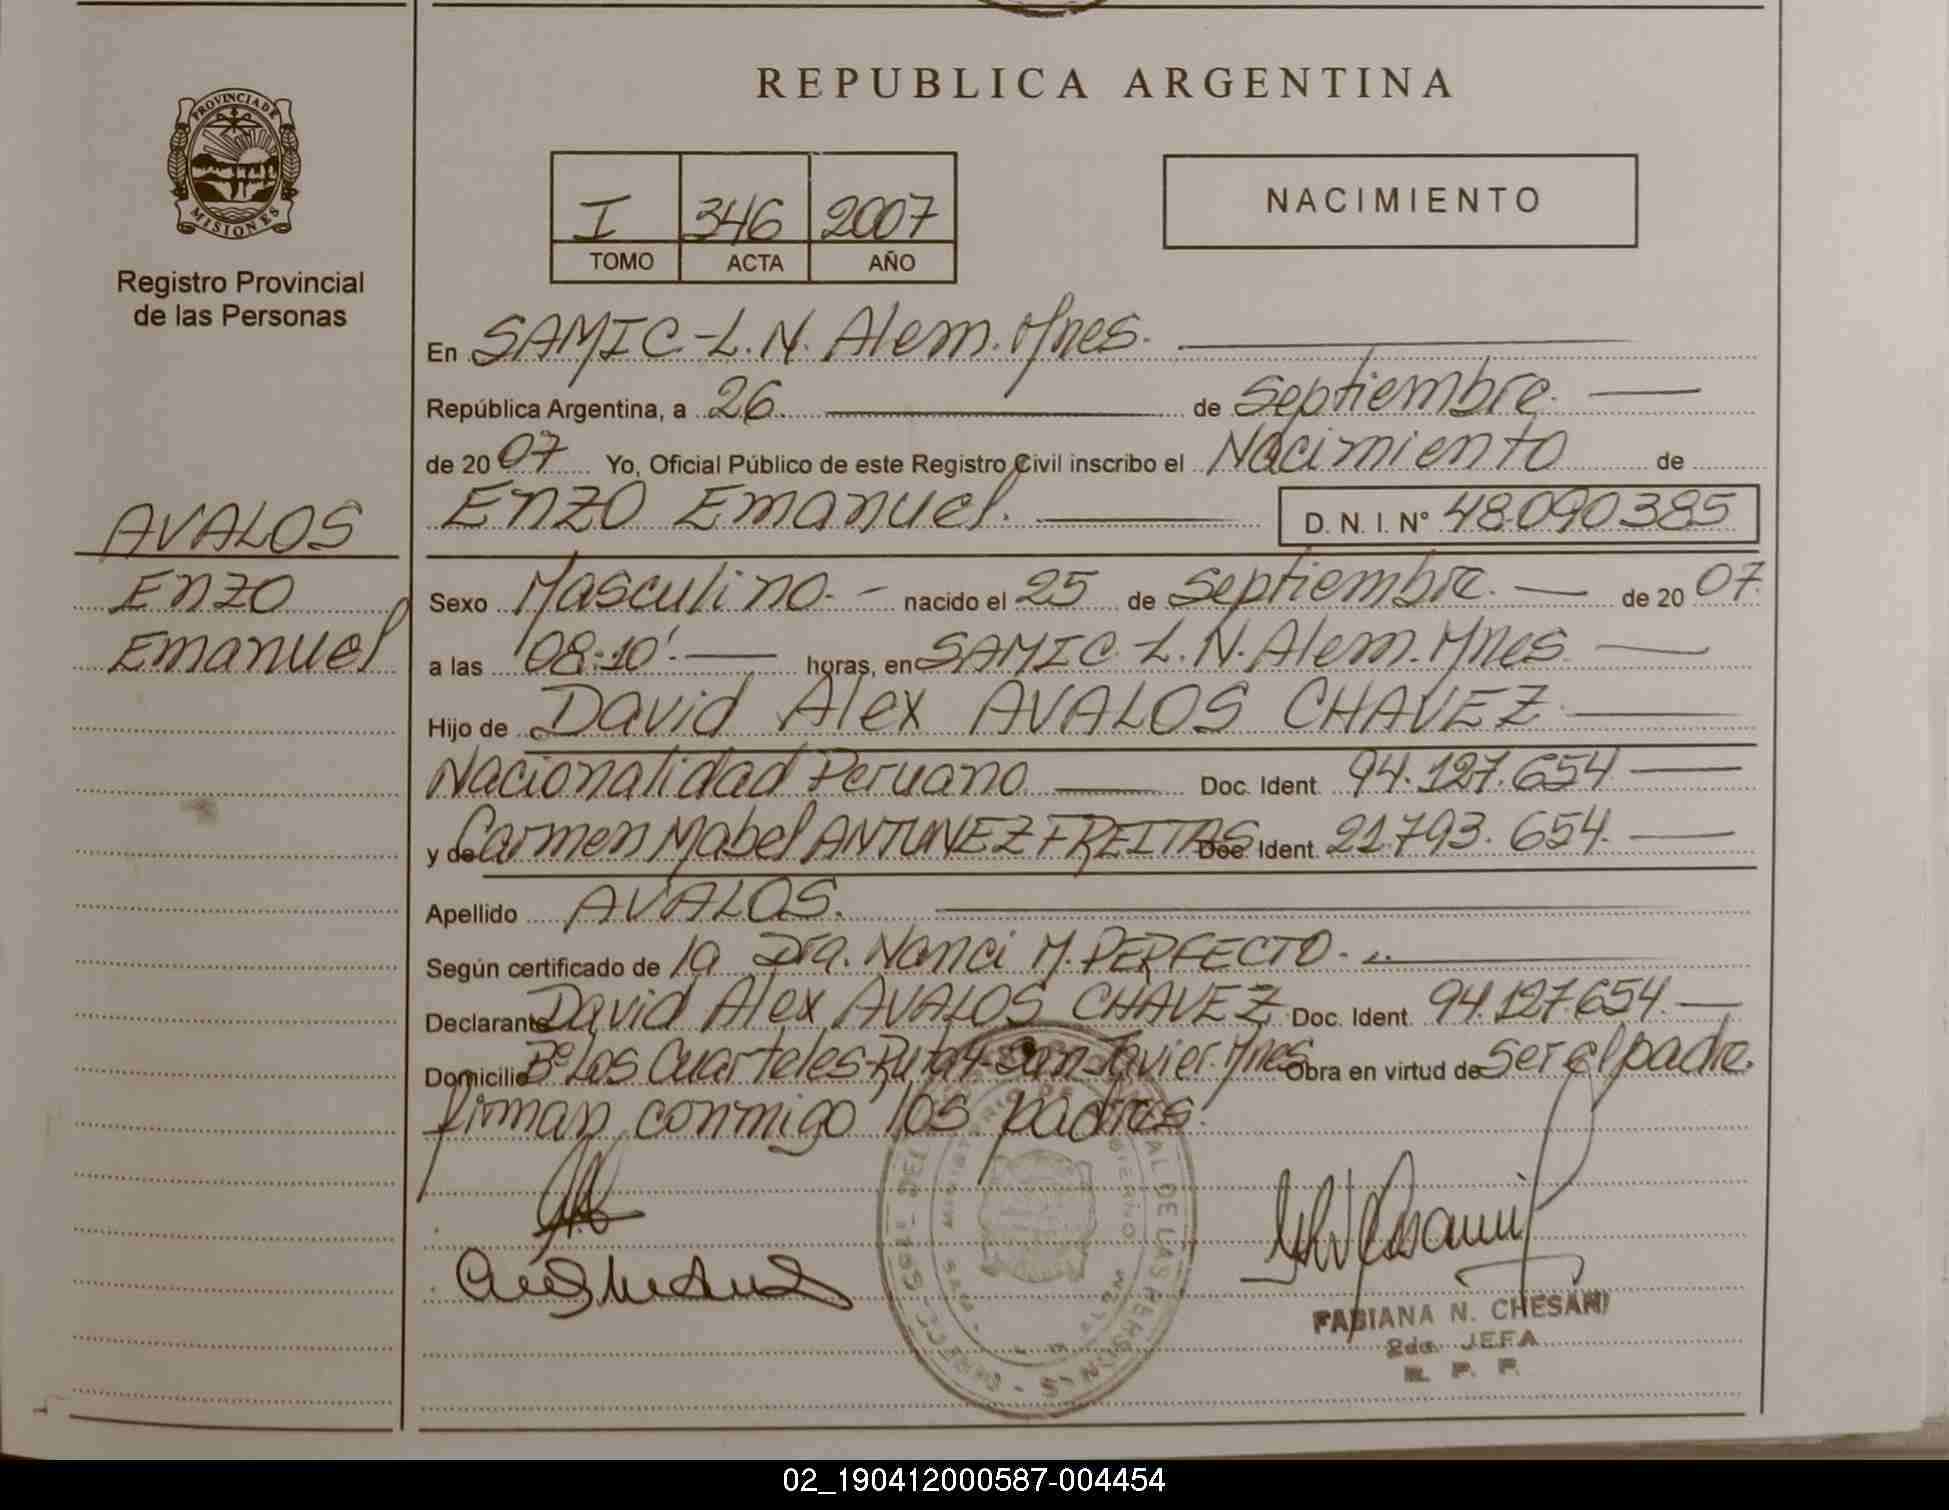 REPUBLICA ARGENTINA
PROVINCIA DE
MISIONES
Registro Provincial
de las Personas
I 346 2007
TOMO ACTA AÑO
NACIMIENTO
En SAMIC-L.N. Alem. Mnes.
República Argentina, a 26. de Septiembre.
de 2007 Yo, Oficial Público de este Registro Civil inscribo el Nacimiento de
Enzo Emanuel. D. N. I. Nº 48.090.385
AVALOS
Enzo
Emanuel
Sexo Masculino.- nacido el 25 de Septiembre. de 2007.
a las 08:10'. horas, en SAMIC-L.N. Alem. Mnes.
Hijo de David Alex AVALOS CHAVEZ.
Nacionalidad Peruano Doc. Ident. 94.127.654
y de Carmen Mabel ANTUNEZ FREITAS Doc. Ident. 21.793.654.
Apellido AVALOS.
Según certificado de la Dra. Nanci M. PERFECTO.
Declarante David Alex AVALOS CHAVEZ Doc. Ident. 94.127.654.
Domicilio Bº Los Cuarteles-Ruta 4-San Javier. Mnes Obra en virtud de Ser el padre.
firman conmigo los padres.
FABIANA N. CHESANI
2da. JEFA
R. P. P.
02_190412000587-004454